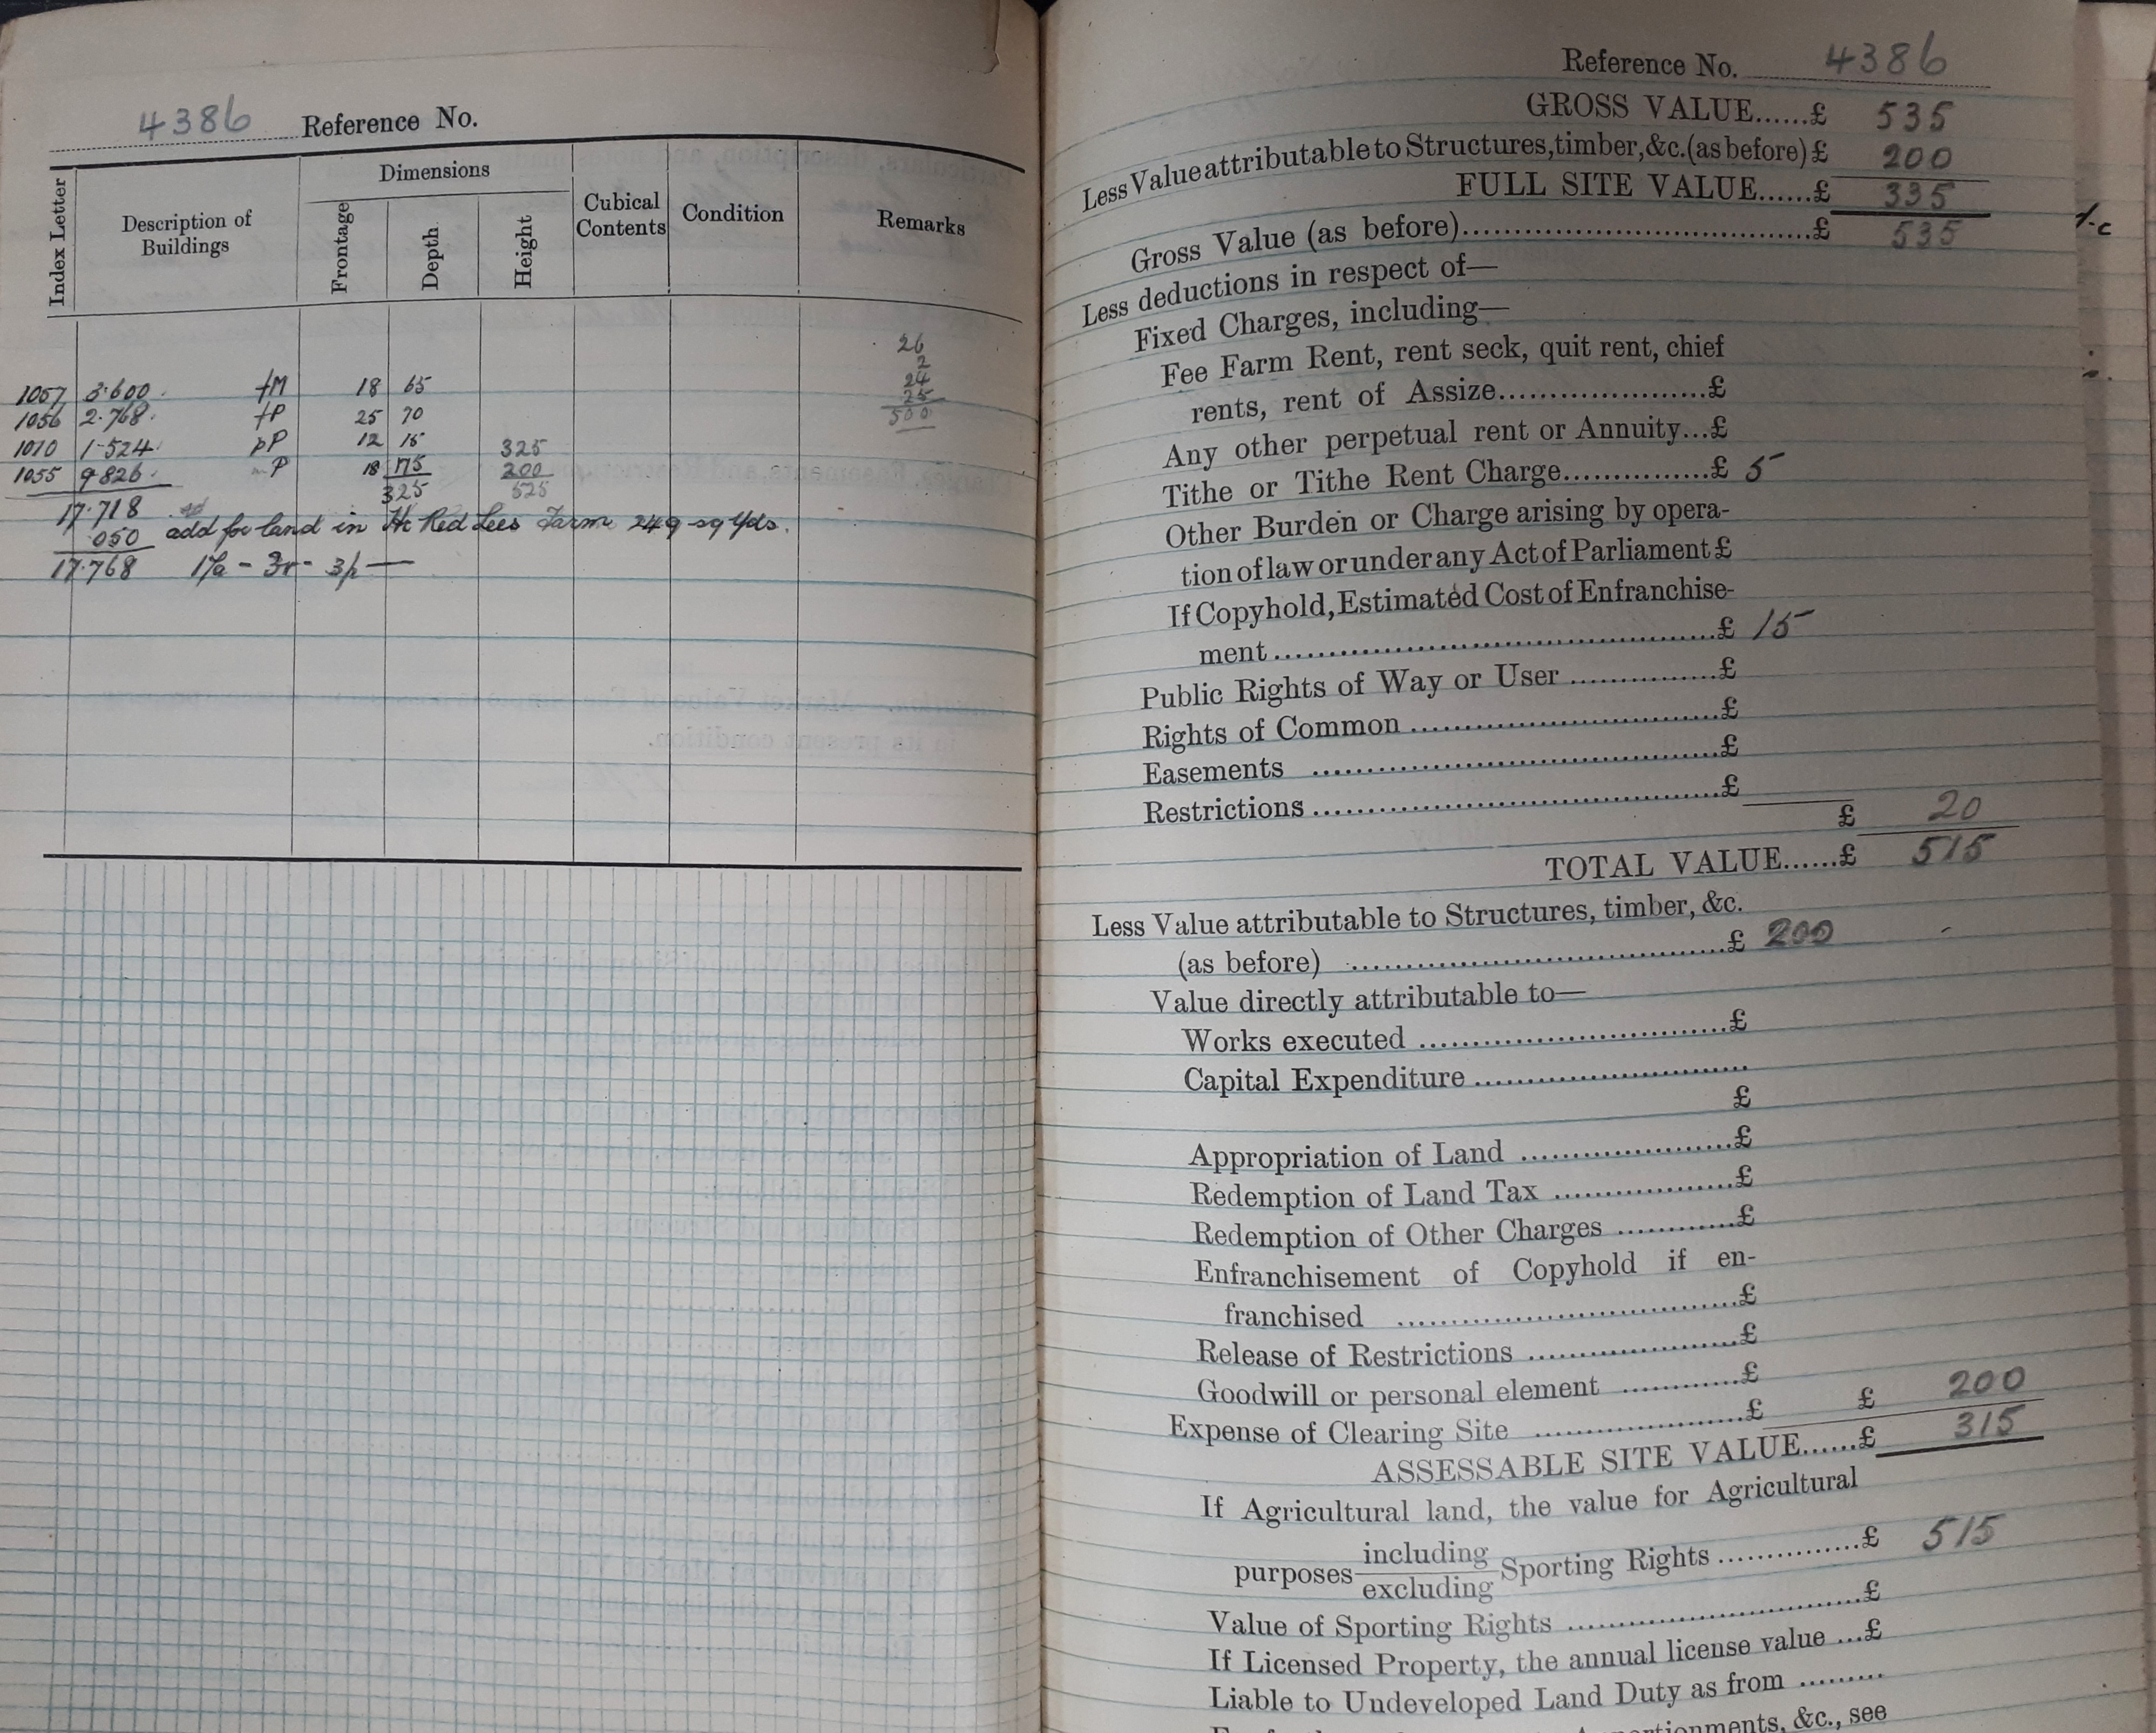 4386 Reference No.
Index Letter
Description of Buildings
Dimensions
Frontage
Depth
Height
Cubical Contents
Condition
Remarks
26
2
24
25
500
1057 3·600 fM 18 65
1056 2·768 fP 25 70
1010 1·524 pP 12 15 325
1055 9826 P 18 175 200
325 525
17·718
·050 add for land in Hr Red Lees Farm 249 sq yds.
17·768 17a - 3r - 3p —
Reference No. 4386
GROSS VALUE......£ 535
Less Value attributable to Structures, timber, &c. (as before) £ 200
FULL SITE VALUE......£ 335
Gross Value (as before)......£ 535
Less deductions in respect of—
Fixed Charges, including—
Fee Farm Rent, rent seck, quit rent, chief
rents, rent of Assize......£
Any other perpetual rent or Annuity...£
Tithe or Tithe Rent Charge......£ 5
Other Burden or Charge arising by opera-
tion of law or under any Act of Parliament £
If Copyhold, Estimated Cost of Enfranchise-
ment......£ 15
Public Rights of Way or User......£
Rights of Common......£
Easements......£
Restrictions......£
£ 20
TOTAL VALUE......£ 515
Less Value attributable to Structures, timber, &c.
(as before)......£ 200
Value directly attributable to—
Works executed......£
Capital Expenditure......
£
Appropriation of Land......£
Redemption of Land Tax......£
Redemption of Other Charges......£
Enfranchisement of Copyhold if en-
franchised......£
Release of Restrictions......£
Goodwill or personal element......£
Expense of Clearing Site......£ £ 200
ASSESSABLE SITE VALUE......£ 315
If Agricultural land, the value for Agricultural
purposes including
excluding Sporting Rights......£ 515
Value of Sporting Rights......£
If Licensed Property, the annual license value...£
Liable to Undeveloped Land Duty as from.........
&c., see